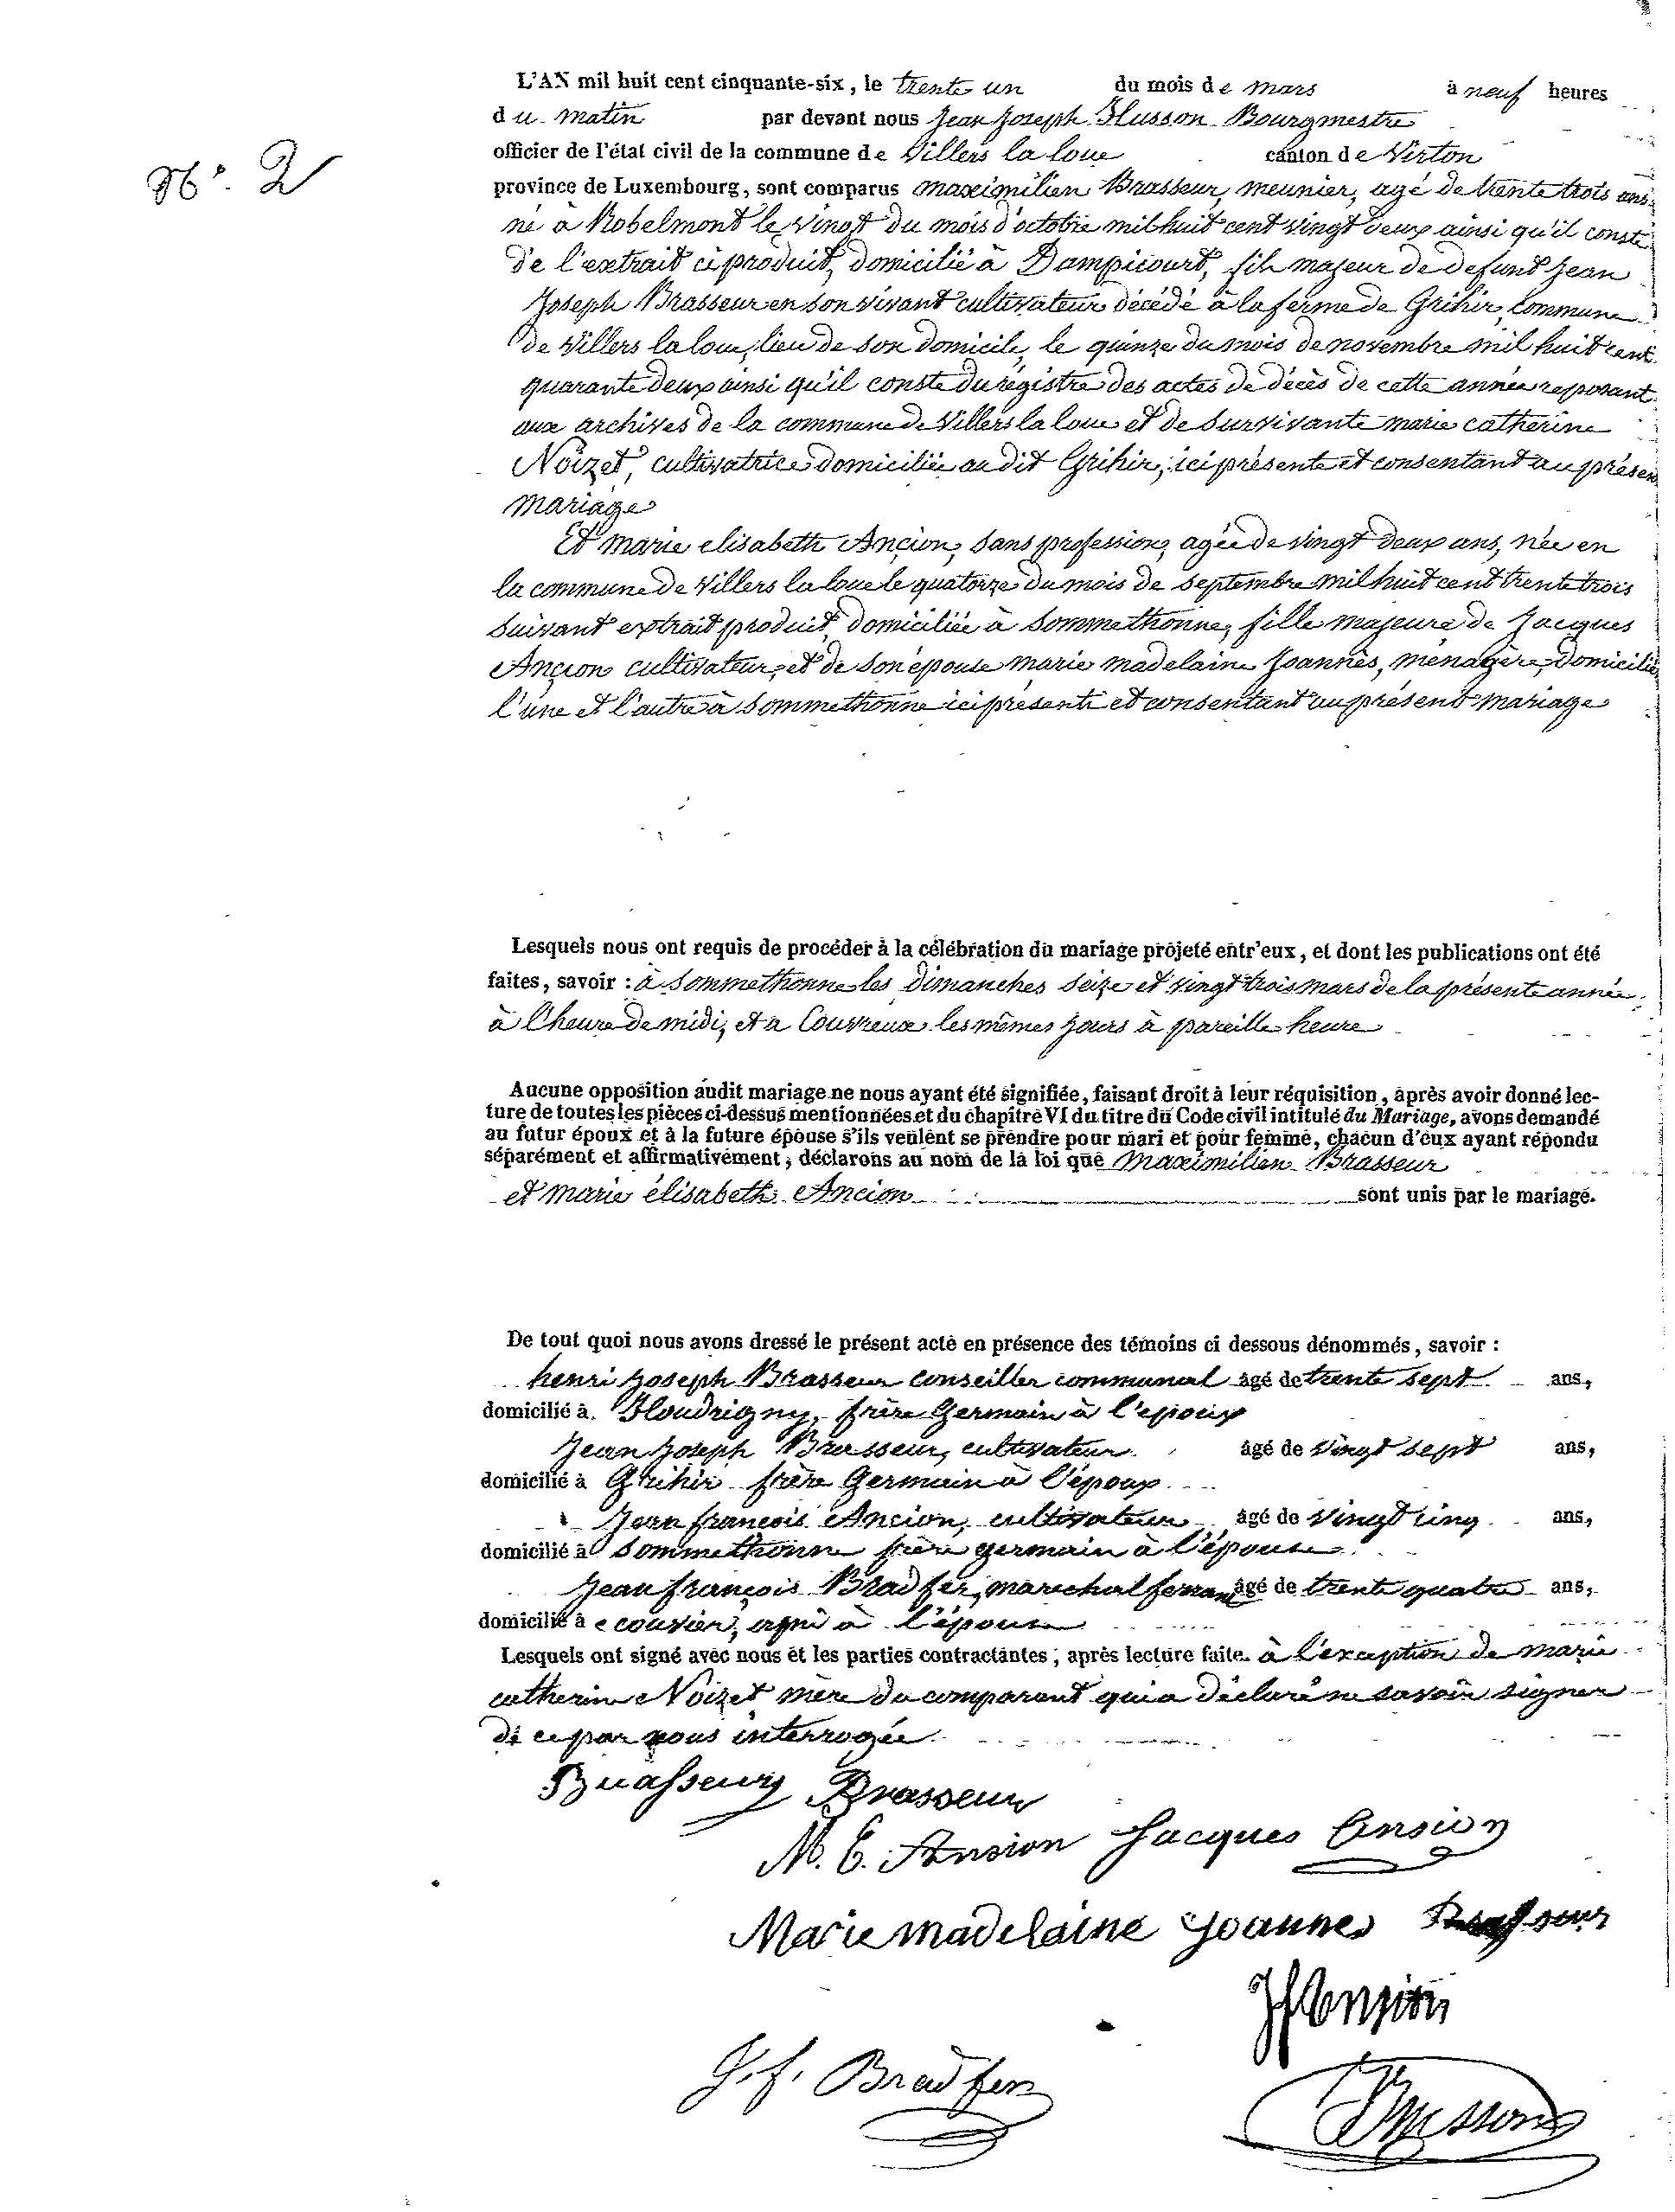 N° 2
L'AN mil huit cent cinquante-six, le trente un du mois de mars à neuf heures
du matin par devant nous Jean Joseph Husson Bourgmestre
officier de l'état civil de la commune de Villers la loue canton de Virton
province de Luxembourg, sont comparus maximilien Brasseur, meunier, agé de trente trois ans
né à Robelmont le vingt du mois d'octobre mil huit cent vingt deux ainsi qu'il conste
de l'extrait ci produit, domicilié à Dampicourt, fils majeur de defunt Jean
Joseph Brasseur en son vivant cultivateur décédé à la ferme de Grihir, commune
de Villers la loue, lieu de son domicile, le quinze du mois de novembre mil huit cent
quarante deux ainsi qu'il conste du régistre des actes de décès de cette année reposant
aux archives de la commune de Villers la loue et de survivante marie catherine
Noizet, cultivatrice domiciliée au dit Grihir, ici présente et consentant au présent
mariage
Et marie elisabeth Ancion, sans profession, agée de vingt deux ans, née en
la commune de Villers la loue le quatorze du mois de septembre mil huit cent trente trois
suivant extrait produit, domiciliée à Sommethonne, fille majeure de Jacques
Ancion cultivateur, et de son épouse marie madelaine Joannès, ménagère, domiciliés
l'une et l'autre à Sommethonne ici présents et consentant au présent mariage
Lesquels nous ont requis de procéder à la célébration du mariage projeté entr'eux, et dont les publications ont été
faites, savoir : à Sommethonne les dimanches seize et vingt trois mars de la présente année
à l'heure de midi, et à Couvreux les mêmes jours à pareille heure
Aucune opposition audit mariage ne nous ayant été signifiée, faisant droit à leur réquisition, après avoir donné lec-
ture de toutes les pièces ci-dessus mentionnées et du chapitre VI du titre du Code civil intitulé du Mariage, avons demandé
au futur époux et à la future épouse s'ils veulent se prendre pour mari et pour femme, chacun d'eux ayant répondu
séparément et affirmativement, déclarons au nom de la loi que Maximilien Brasseur
et marie élisabeth Ancion sont unis par le mariage.
De tout quoi nous avons dressé le présent acte en présence des témoins ci dessous dénommés, savoir :
henri Joseph Brasseur conseiller communal âgé de trente sept ans,
domicilié à Houdrigny, frère Germain à l'époux
Jean Joseph Brasseur, cultivateur âgé de vingt sept ans,
domicilié à Grihir frère Germain à l'époux
Jean françois Ancion, cultivateur âgé de vingt cinq ans,
domicilié à Sommethonne frère germain à l'épouse
Jean françois Bradfer, marechal ferrant âgé de trente quatre ans,
domicilié à ecouvier, ami à l'épouse
Lesquels ont signé avec nous et les parties contractantes, après lecture faite. à l'exception de marie
catherine Noizet mère du comparant qui a déclaré ne savoir signer
de ce par nous interrogée
Brasseur Brasseur
M. E. Ansion Jacques Ansion
Marie madelaine Joannes Brasseur
JfAnsion
J. f. Bradfer
Husson